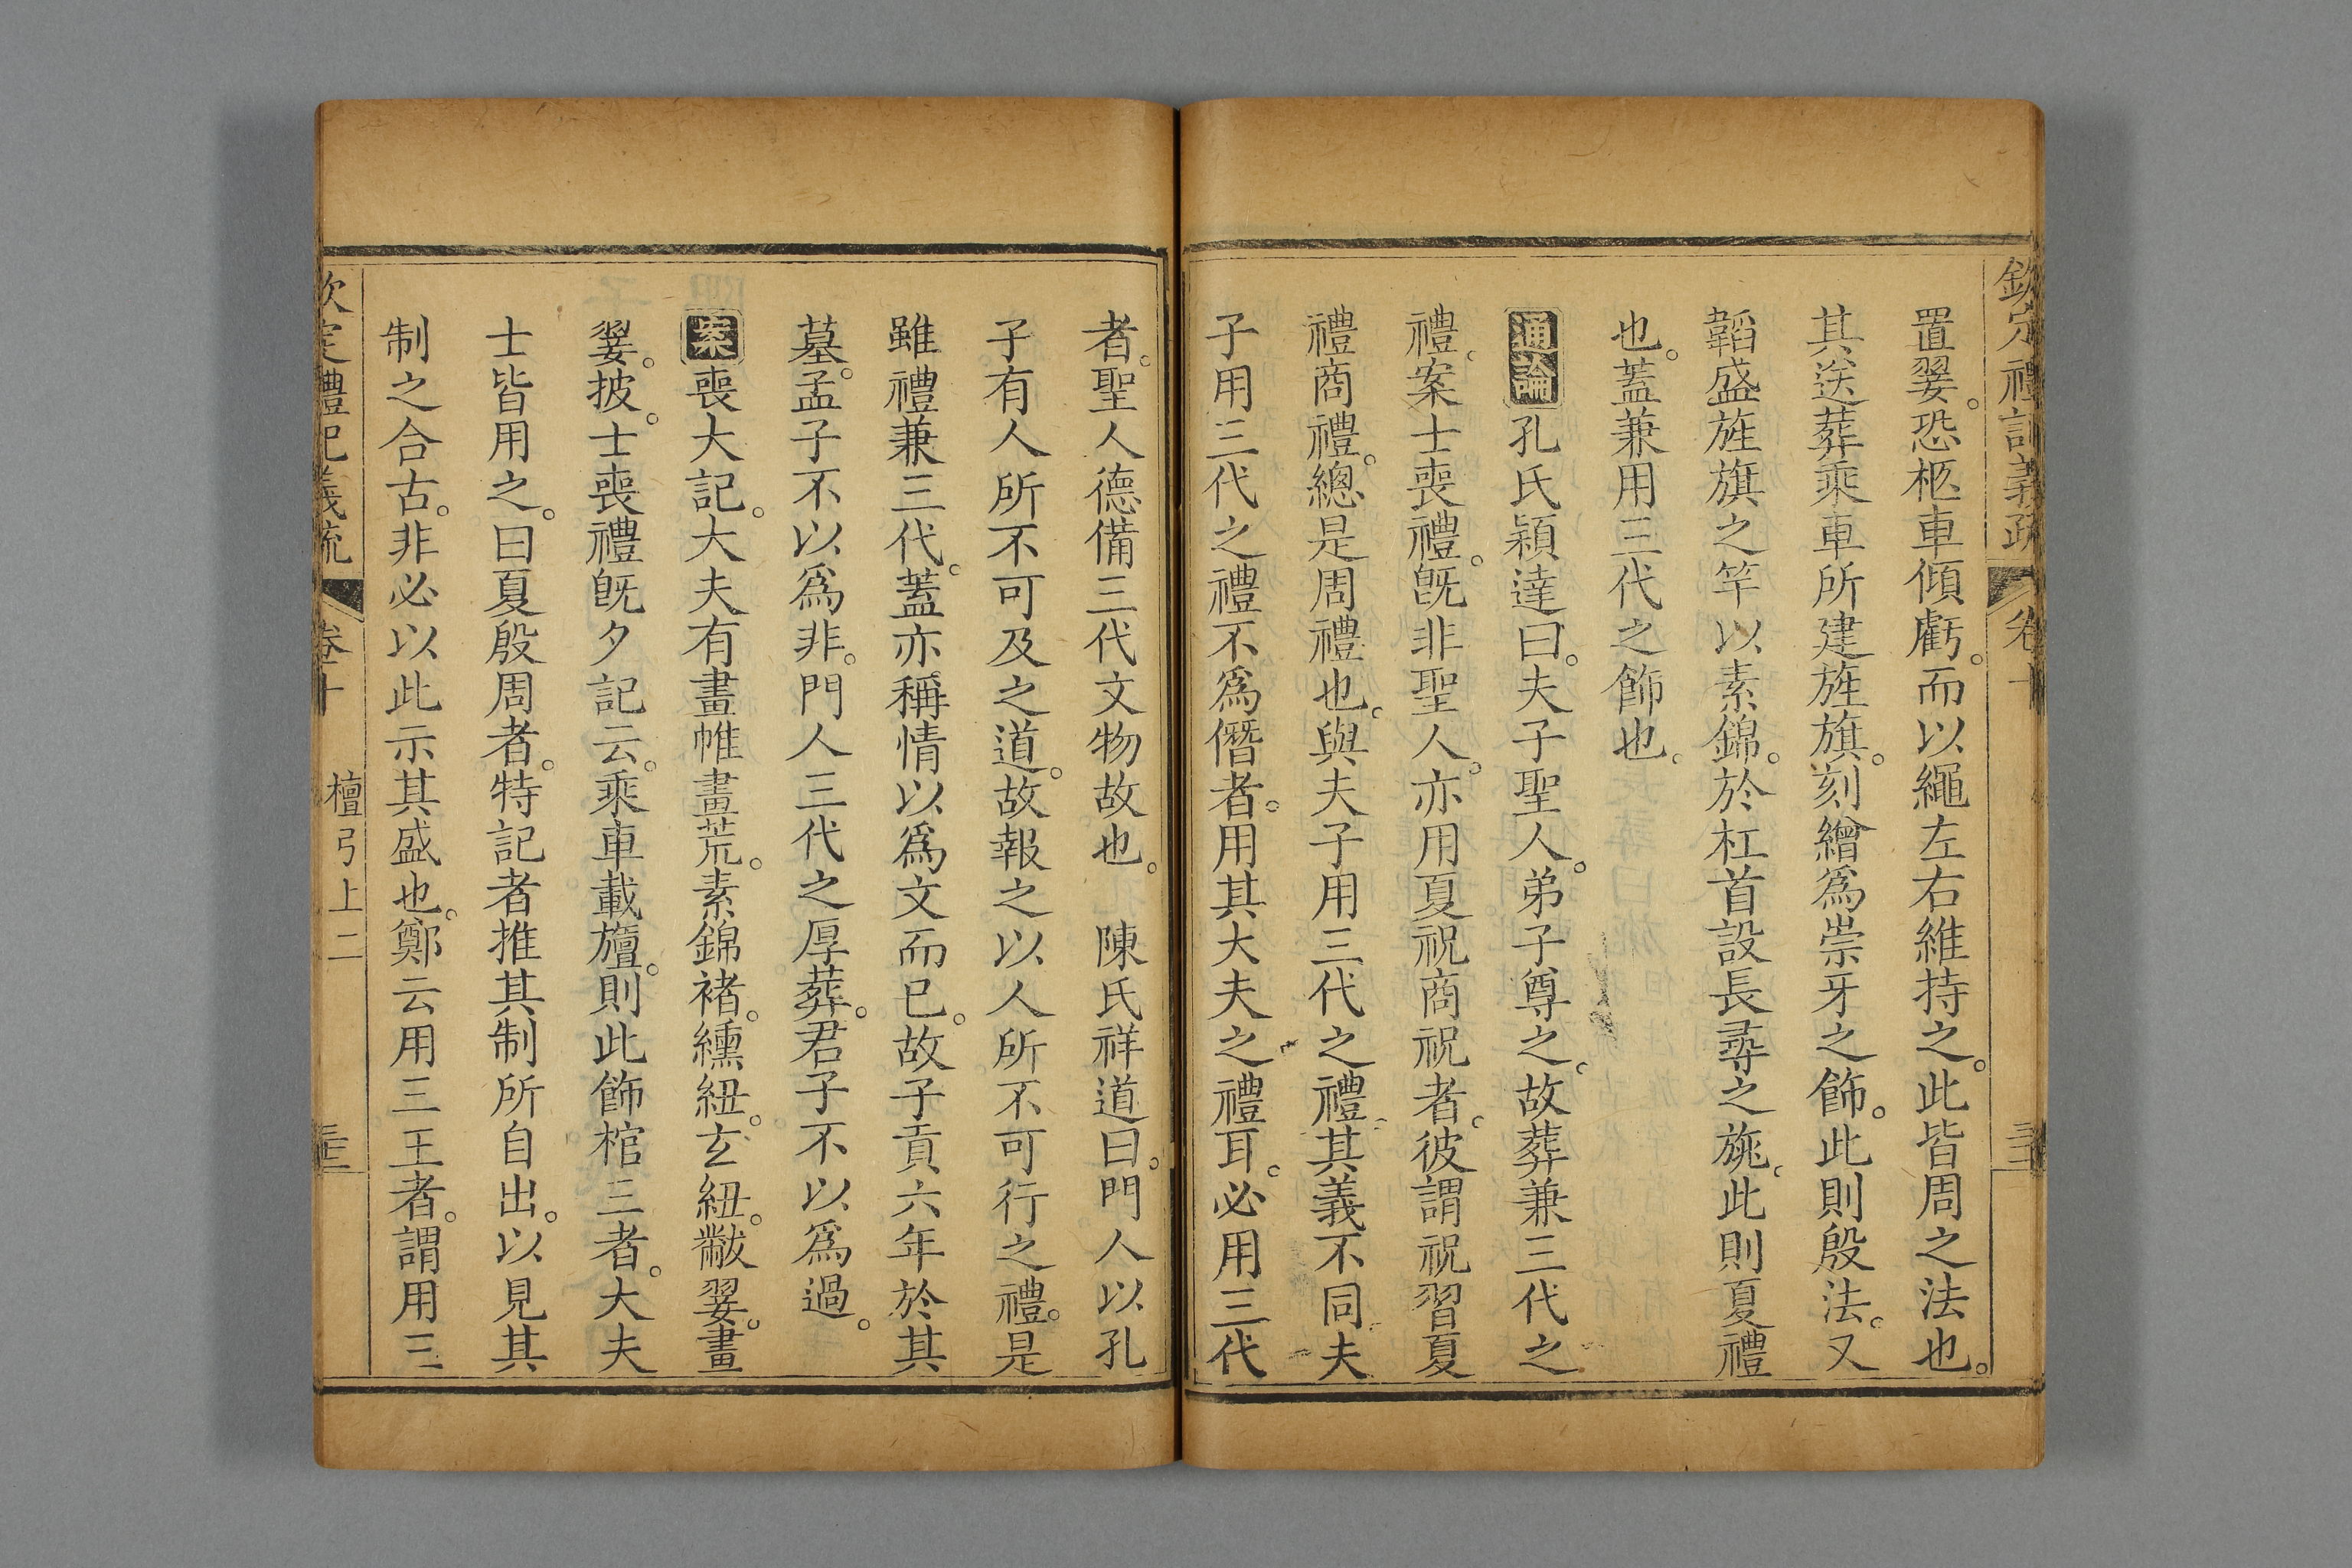 欽定禮記義疏 卷十
置翣。恐柩車傾虧。而以繩左右維持之。此皆周之法也。
其送葬乘車所建旌旗。刻繒爲崇牙之飾。此則殷法。又
韜盛旌旗之竿以素錦。於杠首設長尋之旐。此則夏禮
也。蓋兼用三代之飾也。
通論孔氏穎達曰。夫子聖人。弟子尊之。故葬兼三代之
禮。案士喪禮。旣非聖人。亦用夏祝商祝者。彼謂祝習夏
禮商禮。總是周禮也。與夫子用三代之禮。其義不同。夫
子用三代之禮不爲僭者。用其大夫之禮耳。必用三代
者。聖人德備三代文物故也。 陳氏祥道曰。門人以孔
子有人所不可及之道。故報之以人所不可行之禮。是
雖禮兼三代。蓋亦稱情以爲文而已。故子貢六年於其
墓。孟子不以爲非。門人三代之厚葬。君子不以爲過。
案喪大記。大夫有畫帷畫荒。素錦褚。纁紐。玄紐。黻翣。畫
翣。披。士喪禮旣夕記云。乘車載旜。則此飾棺三者。大夫
士皆用之。曰夏殷周者。特記者推其制所自出。以見其
制之合古。非必以此示其盛也。鄭云用三王者。謂用三
欽定禮記義疏 卷十 檀弓上二